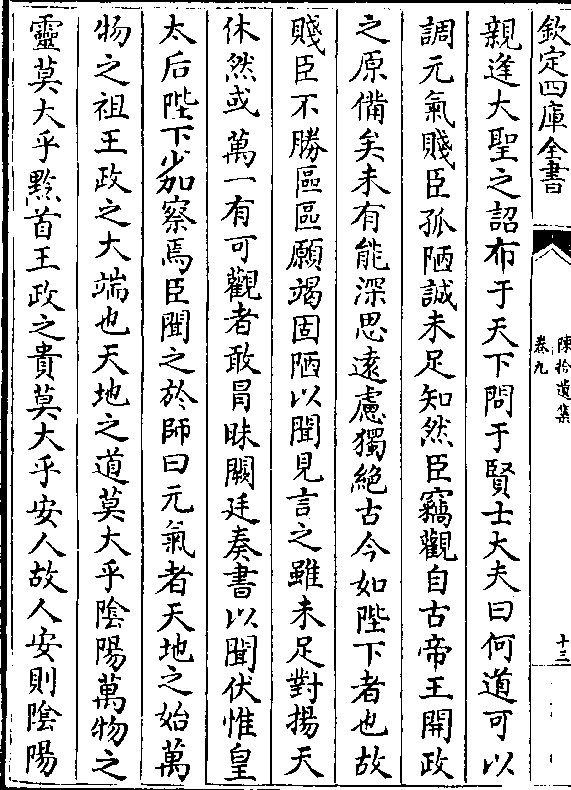 欽定四庫全書
陳拾遺集
卷九
十三
親逢大聖之詔布于天下問于賢士大夫曰何道可以
調元氣賤臣孤陋誠未足知然臣竊觀自古帝王開政
之原備矣未有能深思遠慮獨絶古今如陛下者也故
賤臣不勝區區願竭固陋以聞見言之雖未足對揚天
休然或萬一有可觀者敢冐昧闕廷奏書以聞伏惟皇
太后陛下少加察焉臣聞之於師曰元氣者天地之始萬
物之祖王政之大端也天地之道莫大乎陰陽萬物之
靈莫大乎黔首王政之貴莫大乎安人故人安則陰陽